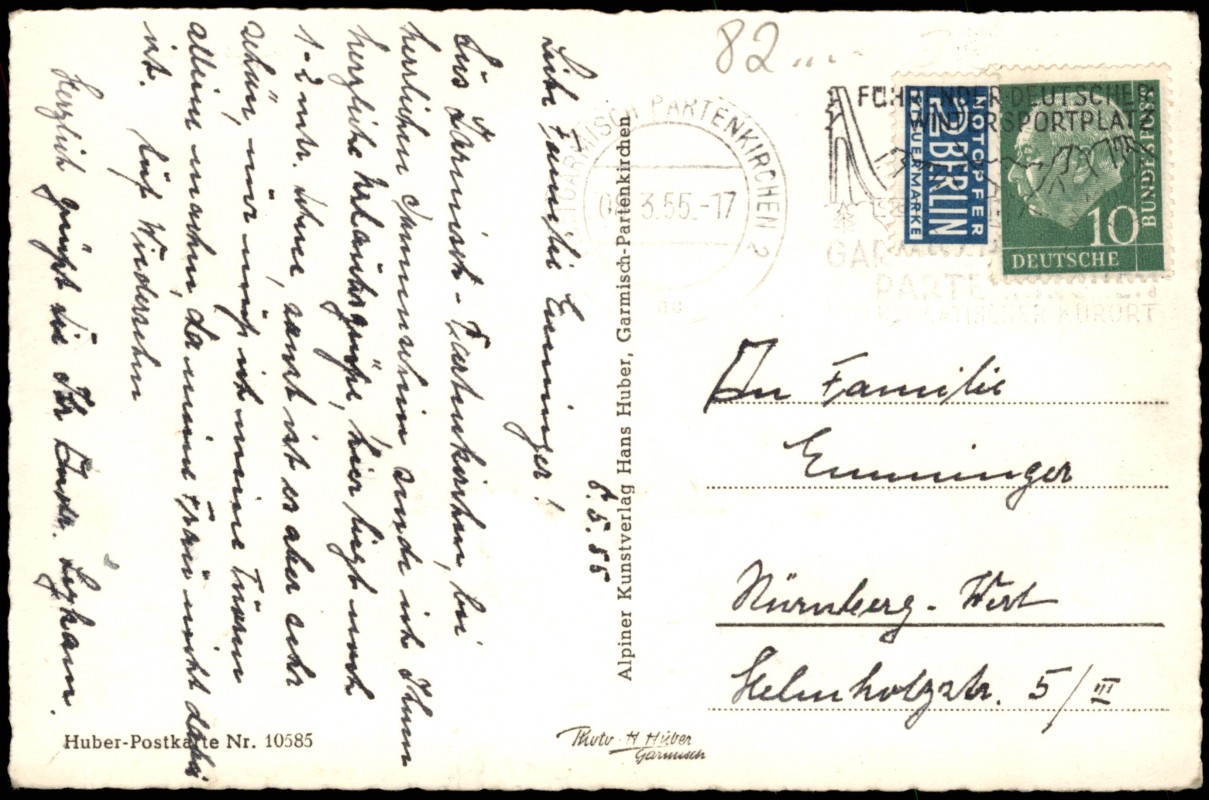 82...
GARMISCH-PARTENKIRCHEN 2
3.55.-17
FÜHRENDER DEUTSCHER
WINTERSPORTPLATZ
GARMISCH
PARTENKIRCHEN
KLIMATISCHER KURORT
NOTOPFER
2 BERLIN
STEUERMARKE
10
DEUTSCHE
BUNDESPOST
Liebe Familie Emminger!
Aus Garmisch-Partenkirchen, bei
herrlichem Sonnenschein sende ich Ihnen
herzliche Urlaubsgrüße, hier liegt noch
1-2 mtr. Schnee, sonst ist es aber sehr
schön, nur muß ich meine Touren
alleine machen, da meine Frau nicht dabei
ist. Auf Wiedersehn
Herzlich grüßt Sie Ihr
Alpiner Kunstverlag Hans Huber, Garmisch-Partenkirchen
An Familie
Emminger
Nürnberg-West
Helmholzstr. 5/III
Huber-Postkarte Nr. 10585
Photo H Huber
Garmisch